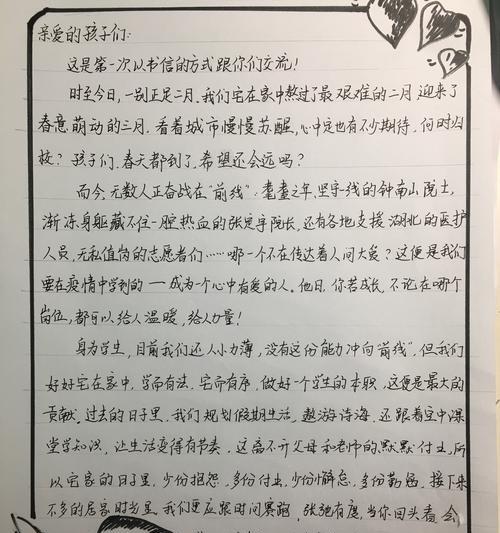 亲爱的孩子们:
这是第一次以书信的方式跟你们交流!
时至今日,一别正足二月,我们宅在家中熬过了最艰难的二月,迎来了
春意萌动的三月.看着城市慢慢苏醒,心中定也有不少期待,何时归
校?孩子们.春天都到了,希望还会远吗?
而今,无数人正奋战在"前线":耄耋之年.坚守一线的钟南山院士,
渐冻身躯藏不住一腔热血的张定宇院长,还有各地支援湖北的医护
人员,无私值岗的志愿者们……哪一个不在传达着人间大爱?这便是我们
要在疫情中学到的——成为个心中有爱的人。他日,你若成长,不论在哪个
岗位,都可以给人温暖,给人力量!
身为学生,目前我们还人小力薄,没有这份能力冲向"前线",但我们
好好宅在家中,学而有法.宅而有序,做好一个学生的本职,这便是最大的
贡献.过去的日子里,我们规划假期生活,遨游诗海,还跟着空中课
堂学知识,让生活变得有节奏,这离不开父母和老师的默默付出,所
以宅家的日子里,少份抱怨,多份付出,少份懈怠,多份勤勉,接下来
不多的居家时光里,我们更应跟时间赛跑,张弛有度,当你回头看,会